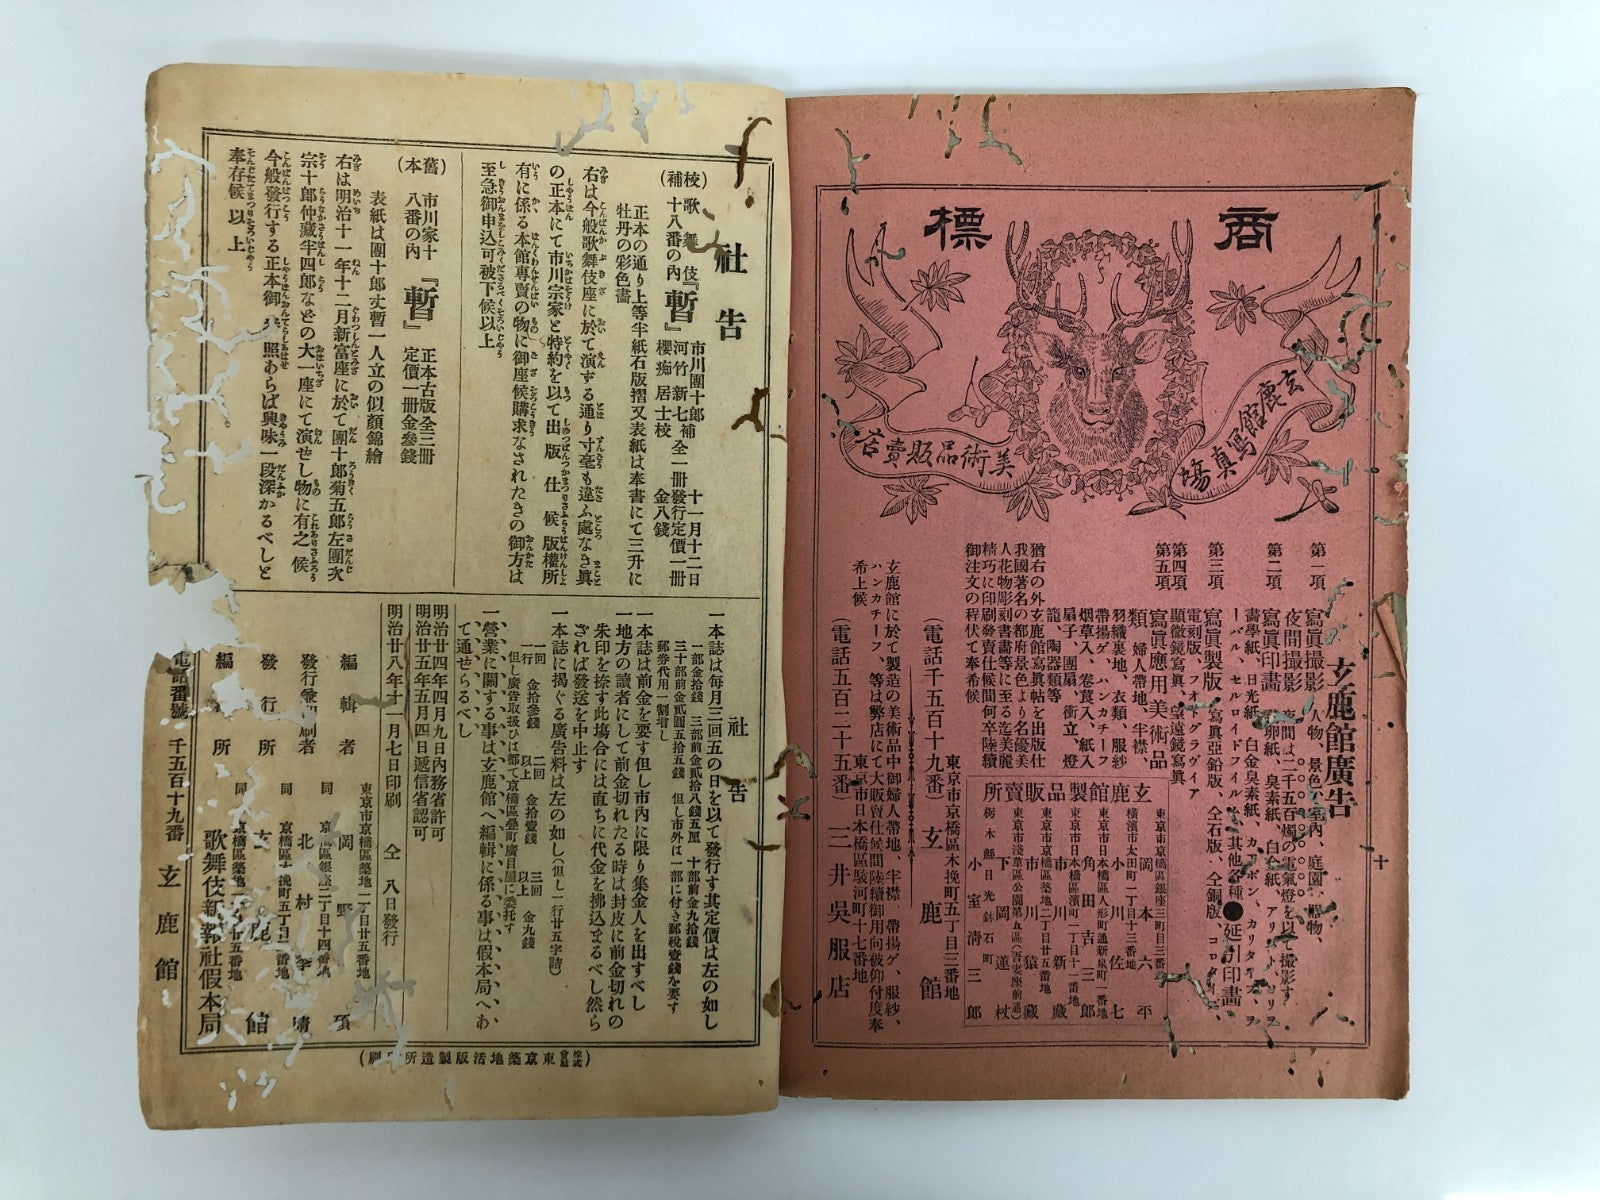 商標
玄鹿館寫眞塲
美術品販賣店
玄鹿館廣告
第一項 寫眞撮影 人物、景色、室內、庭園、器物、
第二項 夜間撮影 夜間は二千五百燭の電氣燈を以て撮影す
寫眞印畫
畵學紙、日光紙、白金臭素紙、カーボン、カリタイプ、ヲ
ーバル、セルロイドフイルム其他各種●延引印畵
第三項 寫眞製版 寫眞亞鉛版、仝石版、仝銅版、コロタイプ
電刻版、フォトグラヴイア
第四項 顯微鏡寫眞、望遠鏡寫眞
第五項 寫眞應用美術品
類、婦人帶地、半襟、
羽織裏地、衣類、服紗
帶揚ゲ、ハンカチーフ
烟草入、卷莨入、紙入
扇子、團扇、衝立、燈
籠、陶器類等
猶右の外玄鹿館寫眞帖を出版仕
我國著名の都府景色より名優美
人花物彫刻書畵等に至る迄美麗
精巧に印刷發賣仕候間何卒陸續
御注文の程伏て奉希候
玄鹿館製品販賣所
東京市京橋區銀座三町目三番地 岡本六平
橫濱市太田町一丁目十三番地 小川佐七
東京市日本橋區人形町通新泉町一番地 角田吉三郎
東京市日本橋區濱町一丁目十一番地 市川新藏
東京市京橋區築地二丁目廿五番地 市川猿藏
東京市淺草區公園第五區(吾妻座前通) 下岡蓮杖
栃木縣日光鉢石町 小室淸三郎
東京市京橋區木挽町五丁目三番地
(電話千五百十九番) 玄鹿館
玄鹿館に於て製造の美術品中御婦人帶地、半襟、帶揚ゲ、服紗、
ハンカチーフ、等は弊店にて大販賣仕候間陸續御用向被仰付度奉
希上候 東京市日本橋區駿河町十七番地
(電話五百二十五番) 三井吳服店
十
社告
(校補) 歌舞伎十八番の內『暫』 市川團十郎 河竹新七補 櫻痴居士校 全一冊 十一月十二日發行定價一冊金八錢
正本の通り上等半紙石版摺又表紙は奉書にて三升に
牡丹の彩色畵
右は今般歌舞伎座に於て演ずる通り寸毫も違ふ處なき眞
の正本にて市川宗家と特約を以て出版仕候版權所
有に係る本館專賣の物に御座候購求なされたきの御方は
至急御申込可被下候以上
(舊本) 市川家十八番の內『暫』 正本古版全三冊 定價一冊金參錢
表紙は團十郎丈暫一人立の似顏錦繪
右は明治十一年十二月新富座に於て團十郎菊五郎左團次
宗十郎仲藏半四郎などの大一座にて演せし物に有之候
今般發行する正本御 照あらば興味一段深かるべしと
奉存候以上
社告
一本誌は每月三回五の日を以て發行す其定價は左の如し
一部金拾錢 三部前金貳拾八錢五厘 十部前金九拾錢
三十部前金貳圓五拾五錢 但し市外は一部に付き郵稅壹錢を要す
郵券代用一割增し
一本誌は前金を要す但し市內に限り集金人を出すべし
一地方の讀者にして前金切れたる時は封皮に前金切れの
朱印を捺す此場合には直ちに代金を拂込まるべし然ら
ざれば發送を中止す
一本誌に揭ぐる廣告料は左の如し(但し一行廿五字詰)
一回一行 金拾參錢 二回以上 金拾壹錢 三回以上 金九錢
但し廣告取扱ひは都て京橋區疊町廣目屋に委托す
一營業に關する事は玄鹿館へ編輯に係る事は假本局へあ
て通せらるべし
明治廿四年四月九日內務省許可
明治廿五年五月四日遞信省認可
明治廿八年十一月七日印刷 仝 八日發行
東京市京橋區築地二丁目廿五番地
編輯者 岡野
京橋區銀座二丁目十四番地
發行兼印刷者 北村
同 京橋區木挽町五丁目三番地
發行所 玄鹿館
同 京橋區築地二丁目廿五番地
編輯所 歌舞伎新報社假本局
電話番號 千五百十九番 玄鹿館
(株式會社東京築地活版製造所印刷)